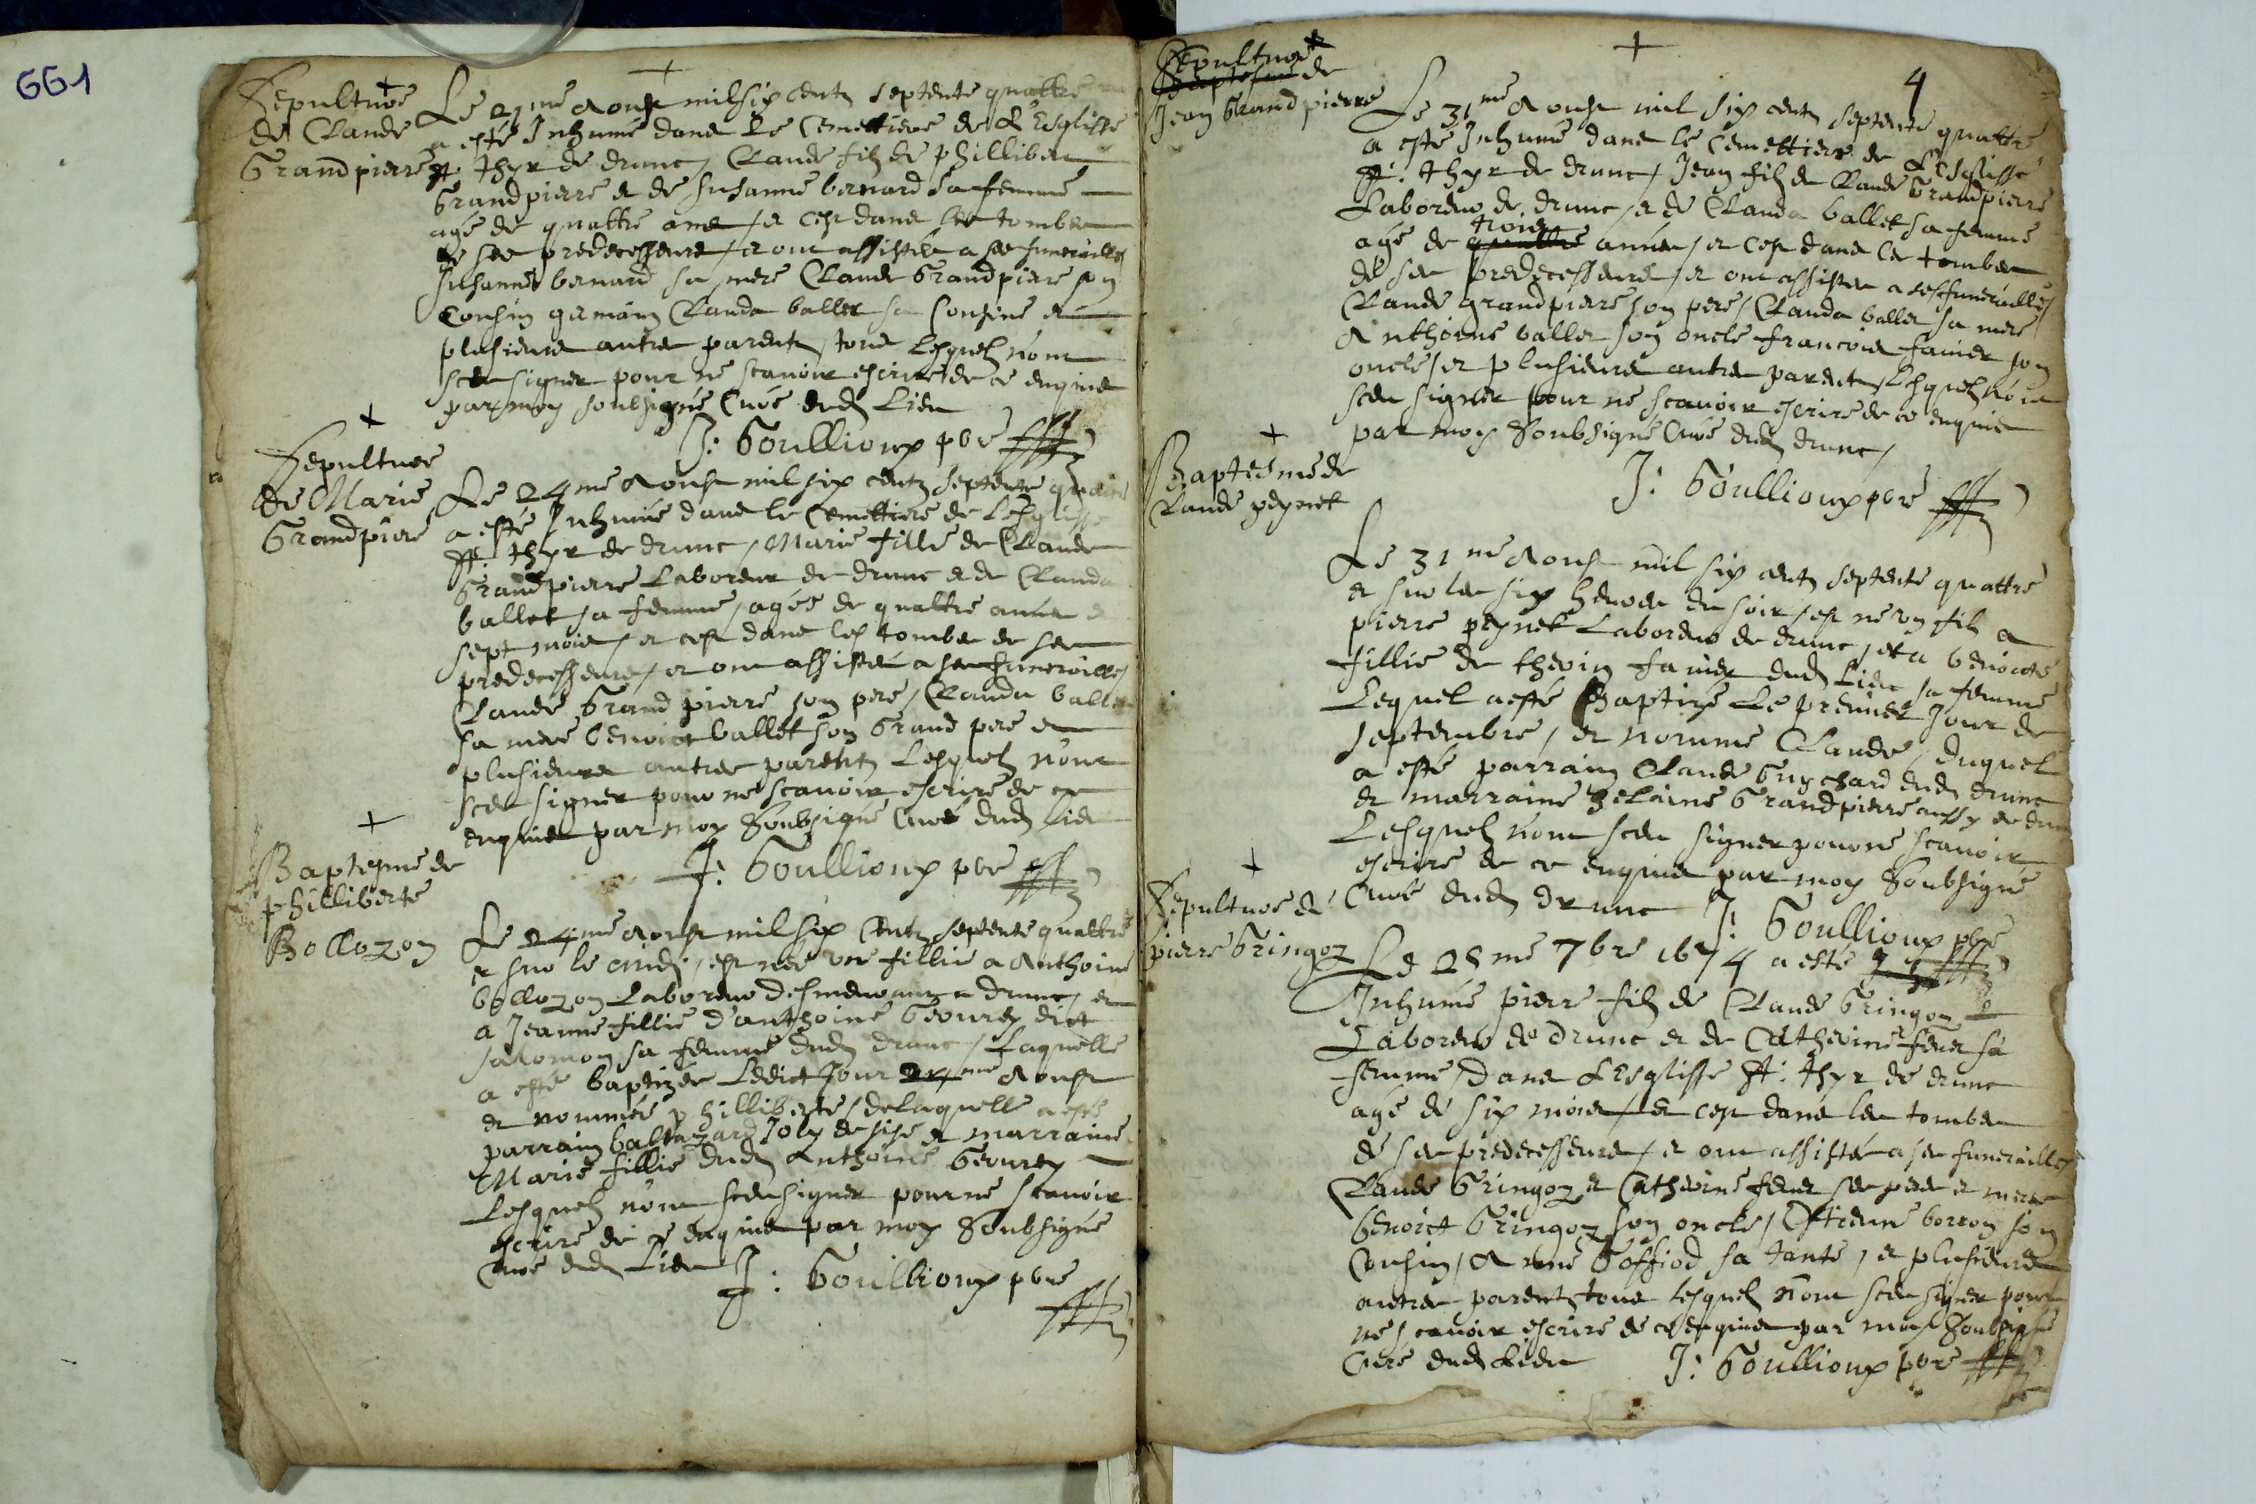 661
Sepulture
de Claude
Grandpierre
Le 21me Aoust mil six centz septente quattre
a esté Inhumé dans Le Cemettiere de L'Esglisse
St. thyr de drunc, Claude filz de phillibert
Grandpierre et de susanne bernard sa femme
agé de quattre ans, et cest dans les tombes
de ses predecesseurs, et ont assistés a ses funerailles
susanne bernard sa mere Claude Grandpiere son
Cousin germain Clauda ballet sa Cousine et
plusieurs autres parentz, tous Lesquelz nont
sceu signer pour ne scavoir escrire de ce enquis
par moy soubsigné Curé dudt Lieu
J: Goullioux pbre
Sepulture
de Marie
Grandpiere
Le 24me Aoust mil six centz septente quattre
a esté Inhumée dans le Cemettiere de Lesglisse
St. thyr de drunc, Marie fille de Claude
Grandpierre Laboreur de drunc et de Clauda
ballet sa femme, agée de quattre années et
sept mois, et cest dans les tombes de ses
predecesseurs, et ont assistés a ses funerailles
Claude Grand pierre son pere, Clauda ballet
sa mere benoict ballet son Grand pere et
plusieurs autres parentz Lesquelz n'ont
sceu signer pour ne scavoir escrire de ce
enquis par moy Soubsigné Curé dudt Lieu
J: Goullioux pbre
Baptesme de
philliberte
Bollozon
Le 24me Aoust mil six Centz septente quattre
et sur le midi, est née une fillie a Anthoine
bollozon Laboreur desmeurant a drunc, et
a Jeanne fillie d'anthoine Geourey dict
salomon sa femme dudt drunc, Laquelle
a esté baptizée Ledict Jour 24me Aoust
et nommée philliberte, delaquelle a esté
parrain baltazard Joly de sise et marraine
Marie fillie dudt Anthoine Geourey
Lesquelz nont sceu signer pour ne scavoir
escrire de ce enquis par moy Soubsigné
Curé dudt Lieu
J: Goullioux pbre
4
Sepulture
de
Jean Grandpierre
Le 31me Aoust mil six centz septente quattre
a esté Inhumé dans le Cemettiere de L'Esglisse
St. thyr de drunc, Jean filz de Claude Grandpierre
Laboreur de drunc, et de Clauda ballet sa femme
trois
agé de quattre années, et cest dans les tombes
de ses predecesseurs, et ont assistés a ses funerailles
Claude grandpierre son pere, Clauda ballet sa mere
Anthoine ballet son oncle francois favier son
oncle, et plusieurs autres parentz, Lesquelz n'ont
sceu signer pour ne scavoir escrire de ce enquis
par moy Soubsigné Curé dudt drunc,
J: Goullioux pbre
Baptesme de
Claude peynet
Le 31me Aoust mil six centz septente quattre
et sur les six heures du soir, est né un filz a
pierre peynet Laboreur de drunc, et a benoicte
fillie de thevin favier dudt Lieu sa femme
Lequel a esté Baptizé Le premier Jour de
septembre, et nommé Claude, duquel
a esté parrain Claude Guychard dudt drunc
et marraine helaine Grandpierre aussy de drunc
Lesquelz n'ont sceu signer pour ne scavoir
escrire de ce enquis par moy Soubsigné
Curé dudt drunc
J: Goullioux pbre
Sepulture de
pierre Gringoz
Le 28me 7bre 1674 a esté
Inhumé pierre filz de Claude Gringoz
Laboreur de drunc et de Catherine sa
femme, dans L'Esglisse St. thyr de drunc
agé de six mois, et cest dans les tombes
de ses predecesseurs, et ont assistés a ses funerailles
Claude Gringoz et Catherine ses pere et mere
benoict Gringoz son oncle, Estienne borron son
Cousin, Anne Goffiod sa tante, et plusieurs
autres parentz tous lesquelz n'ont sceu signer pour
ne scavoir escrire de ce enquis par moy Soubsigné
Curé dudt Lieu
J: Goullioux pbre